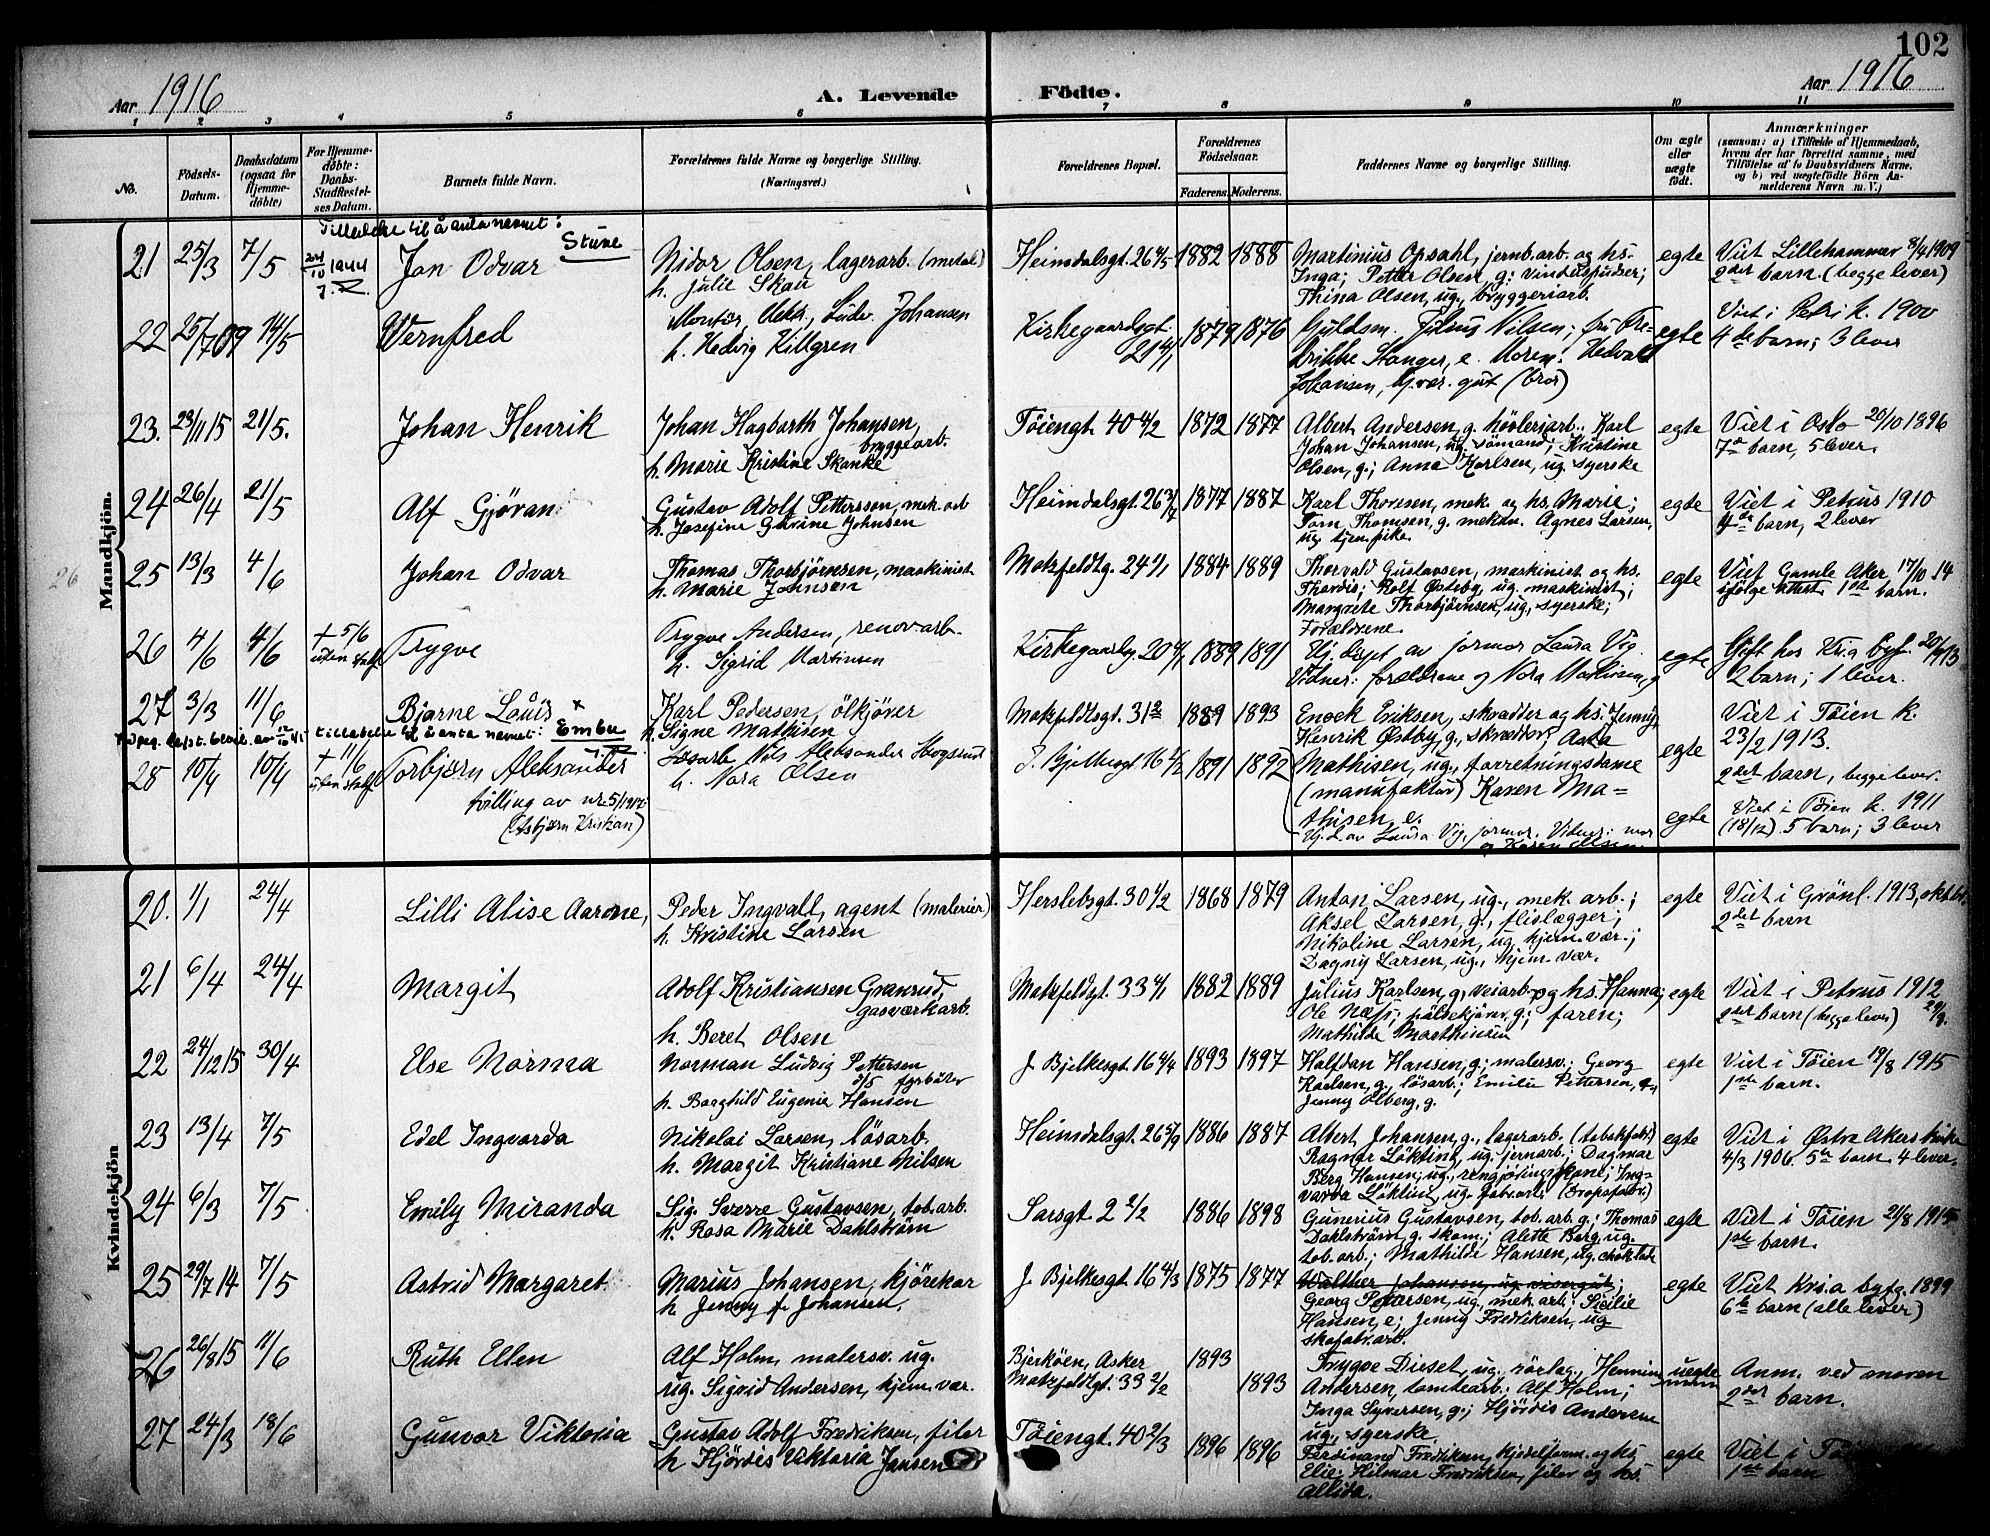 102
Aar 1916
A. Levende Födte.
Aar 1916
1 2 3 4 5 6 7 8 9 10 11
No.
Födsels-Datum.
Daabsdatum (ogsaa for Hjemme-döbte)
For Hjemme-döbte: Daabs-Stadfæstel-ses Datum.
Barnets fulde Navn.
Forældrenes fulde Navne og borgerlige Stilling. (Næringsvei.)
Forældrenes Bopæl.
Forældrenes Födselsaar.
Faderens. Moderens.
Faddernes Navne og borgerlige Stilling.
Om ægte eller uægte födt.
Anmærkninger
(saasom: a) i Tilfælde af Hjemmedaab, hvem der har forrettet samme, med Tilföielse af to Daabsvidners Navne. og b) ved uegtefödte Börn An-melderens Navn m. V.)
Mandkjön.
26
Tilladelse til å anta navnet: Stune
21 25/3 7/5 1944 Jan Odvar
Nidor Olsen, lagerarb. (metal)
h. Julie Skau
Heimdalsgt. 26 4/5 1882 1888
Martinius Opsahl, jernb.arb. og hs.
Inga; Petter Olsen, g; vinduspudser;
Thina Olsen, ug., bryggeriarb.
egte
Viet Lillehammer 8/4 1909
2det barn. (begge lever)
22 25/7 09 14/5 Wernfred
Montör, Mek., Ludv. Johansen
h. Hedvig Killgren
Kirkegaardsgt. 21 4/1 1879 1876
Guldsm. Julius Nilsen; fru Fre-
drikke Stanger, e. Moren. Hedvald
Johansen, hj.vær. gut (bror)
egte
Viet i Petri k. 1900
4de barn; 3 lever
23. 23/11 15 21/5. Johan Henrik
Johan Hagbarth Johansen,
bryggearb.
h. Marie Kristine Skanke
Töiengt 40 4/2 1872 1877
Albert Andersen, g. høvleriarb. Karl
Johan Johansen, ug. sömand; Kristine
Olsen, g.; Anna Karlsen, ug. syerske
egte
Viet i Oslo 20/10 1896
7de barn, 5 lever.
24 26/4 21/5 Alf Gjövan
Gustav Adolf Pettersson, mek. arb
h. Josefine Gurine Johnsen
Heimdalsgt. 26 1877 1887
Karl Thoresen, mek. og hs. Marie;
Agnes Larsen,
ug. tjen. pike.
egte
Viet i Petrus 1910
4de barn, 2 lever
25 13/3 4/6 Johan Odvar
Thomas Thorbjørnsen, maskinist
h. Marie Johnsen
Motzfeldtg. 24 4/1 1884 1889
Thorvald Gustavsen, maskinist og hs.
Thordis; Rolf Østeby, ug. maskinist;
Margrete Thorbjørnsen, ug, syerske;
Forældrene.
egte
Viet Gamle Aker 17/10 14
ifölge attest. 1ste barn.
26 4/6 4/6 + 5/6 uten stadf Trygve
Trygve Andersen, renov.arb.
h. Sigrid Martinsen
Kirkegaardsg. 20 4/1 1889 1891
Hj. döpt av jormor Laura Vig.
Vidner: forældrene og Nora Martinsen, g
egte
Gift hos Kr.a byf. 20/9 13
2 barn; 1 lever.
27 3/3 11/6 Bjarne Louis x
tilladelse til å anta navnet: Embu
Karl Pedersen, ölkjörer
h. Signe Mathisen
Motzfeldtsgt. 31 1889 1893
Enock Eriksen, skrædder og hs. Jenny;
Henrik Østby, g., skrædder; Asta
Mathisen, ug., forretningsdame
(manufaktur) Karen Ma-
thisen, e.
egte
Viet i Töien k.
23/2 1913.
2det barn, begge lever.
28 10/4 10/4 + 11/6 uten stadf Torbjörn Aleksander
tvilling av nr. 5/1917
(Asbjørn Kristian)
Løsarb Nils Aleksander Skogsrud
h. Nora Olsen
J. Bjelkesgt 16 4/2 1891 1892
Hj. d. av Laura Vig, jormor. Vidner: mor
og Karen Olsen
egte
Viet i Töien k. 1911
(18/12) 5 barn; 3 lever
Kvindekjön
20. 1/1 24/4 Lilli Alise Aarone,
Peder Ingvall, agent (malerier)
h. Kristine Larsen
Herslebsgt. 30 4/2 1868 1879
Anton Larsen, ug., mek. arb.;
Aksel Larsen, g., flislægger;
Nikoline Larsen, ug. hjem. vær.;
Dagny Larsen, ug., hjem. vær.
egte
Viet i Grönl. 1913, oktbr.
2det barn
21 6/4 24/4 Margit
Adolf Kristiansen Granrud,
gasværkarb.
h. Beret Olsen
Motzfeldtgt. 33 4/1 1882 1889
Julius Karlsen, g, veiarb. og hs. Hanna;
Ole Næss; pölsekjører, g.; faren;
Mathilde Marthinsen
egte
Viet i Petrus 1912
2det barn (begge lever)
22 24/12 15 30/4 Else Norma
Norman Ludvig Pettersen
fyrböter
h. Borghild Eugenie Hansen
J. Bjelkesgt 16 4/4 1893 1897
Halfdan Hansen, g; malersv.; Georg
Karlsen, g., lösarb.; Emilie Pettersen, g,
Jenny Olberg, g.
egte
Viet i Töien 19/8 1915
1ste barn.
23 13/4 7/5 Edel Ingvarda
Nikolai Larsen, lösarb.
h. Margit Kristiane Nilsen
Heimdalsgt. 26 5/9 1886 1887
Albert Johansen, g., lagerarb. (tobakfabr.)
Ragnar Löktind, ug. jernarb.; Dagmar
Berg Hansen, ug., rengjöringskone; Ing-
varda Löktind, ug. fabr.arb (dropsfabr.)
egte
Viet i Østre Akers kirke
4/3 1906. 5te barn. 4 lever.
24 6/3 7/5 Emily Miranda
Sig. Sverre Gustavsen, tob.arb.
h. Rosa Marie Dahlström
Sarsgt 2 2/2 1886 1898
Gunerius Gustavsen, tob. arb. g.; Thomas
Dahlström, g. skom.; Alette Berg, ug.
tob. arb.; Mathilde Hansen, ug. choklade
egte
Viet i Töien 21/8 1915
1ste barn.
25 29/7 14 7/5 Astrid Margaret
Marius Johansen, kjörekar
h Jenny f. Johansen.
J. Bjelkesgt 16 4/3 1875 1877
Walther Johansen, ug visergut;
Georg Petersen, ug., mek. arb.; Sicilie
Hansen, e; Jenny Fredriksen, ug
skofabr.arb.
egte
Viet Kr.a byfg. 1899
6te barn (alle lever)
26 26/8 15 11/6 Ruth Ellen
Alf Holm, malersv. ug.
ug. Sigrid Andersen, hjem. vær.
Bjerköen, Asker 1893
Motzfeldtgt. 33 2/2 1893
Trygve Dieset, ug. rörlæg.; Henning
Andersen, tomtearb.; Alf Holm;
Inga Syversen, g.; Hjördis Andersen
ug., syerske.
uegte
Anm. ved moren
2det barn.
27 24/3 18/6 Gunvor Viktoria
Gustav Adolf Fredriksen, filer
h Hjördis Viktoria Jansen
Töiengt. 40 2/3 1896 1896
Ferdinand Fredriksen, kjedelform. og hs
Elie; Hilmar Fredriksen, filer og hs.
Allida.
egte
Viet i
1ste barn